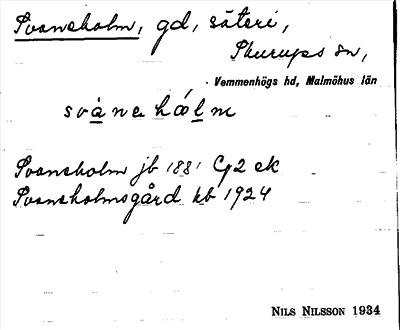 Svaneholm, gd, säteri,
Skurups sn,
Vemmenhögs hd, Malmöhus län
svånehǽlm
Svaneholm jb 1881 G2 ek
Svaneholmsgård kb 1924
NILS NILSSON 1934